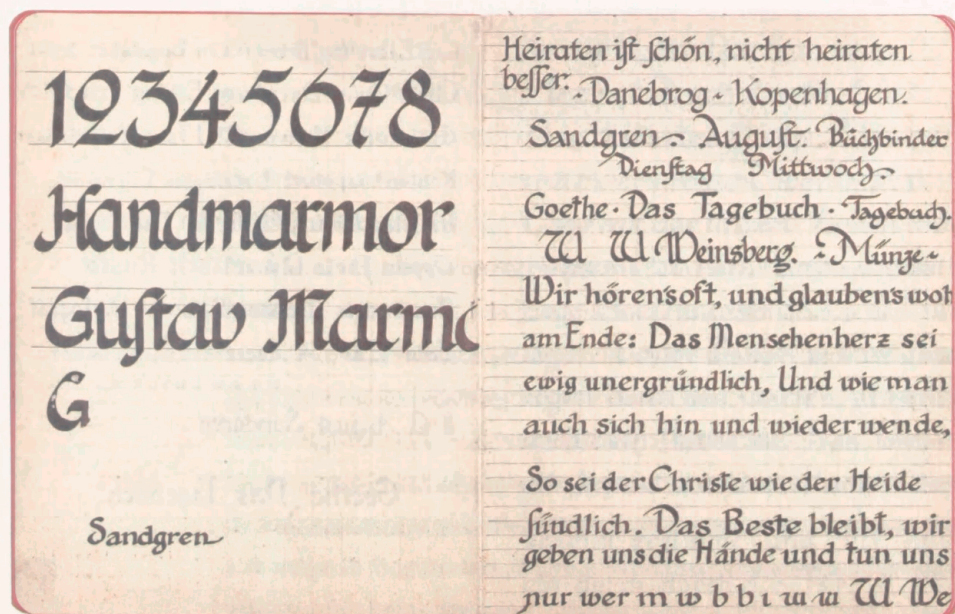 12345678
Handmarmor
Gustav Marmo
G
Sandgren
Heiraten ist schön, nicht heiraten
besser. Danebrog · Kopenhagen.
Sandgren · August · Buchbinder
Dienstag Mittwoch
Goethe · Das Tagebuch · Tagebuch.
W W Weinsberg. - Münze -
Wir hören's oft, und glauben's woh
am Ende: Das Mensehenherz sei
ewig unergründlich, Und wie man
auch sich hin und wieder wende,
So sei der Christe wie der Heide
sündlich. Das Beste bleibt, wir
geben uns die Hände und tun uns
nur wer m w b b ı w w W We